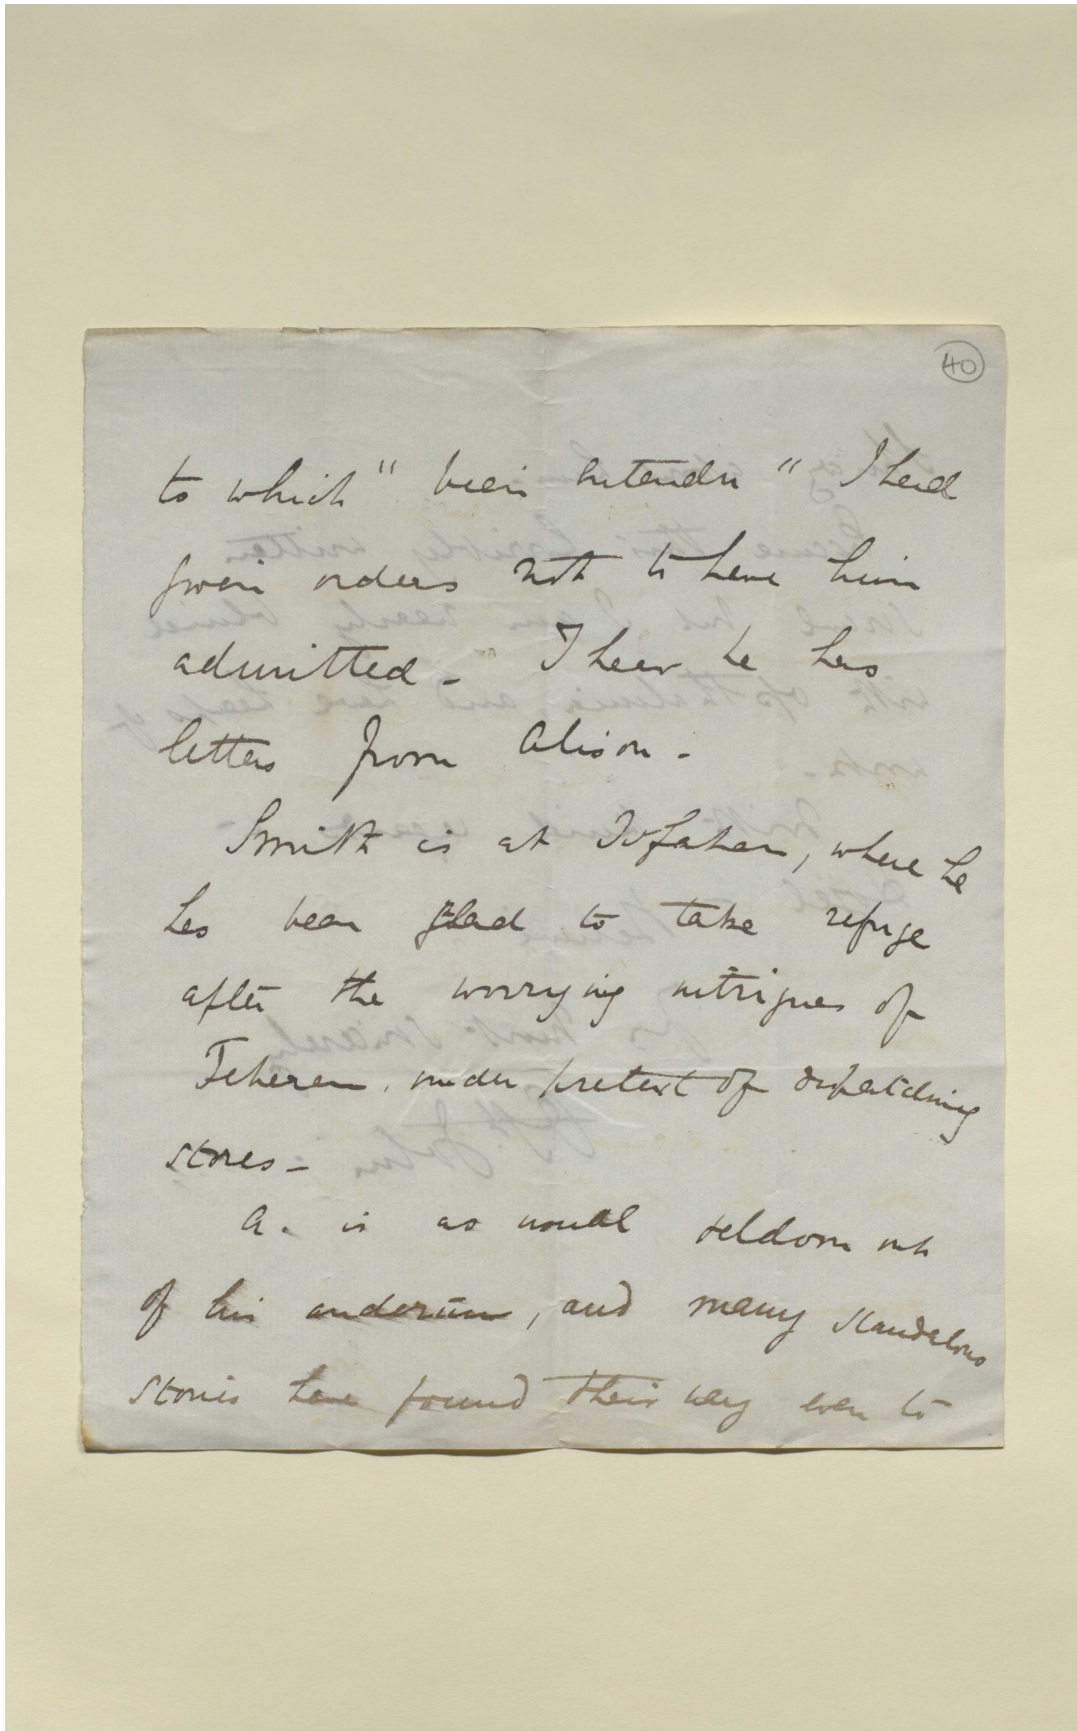 40
to which "bien entendu" I had
given orders not to have him
admitted - I hear he has
letters from Alison -
Smith is at Isfahan, where he
has been glad to take refuge
after the worrying intrigues of
Teheran, under pretext of dispatching
stores -
A. is as usual seldom out
of his anderūn, and many scandalous
stories have found their way even to